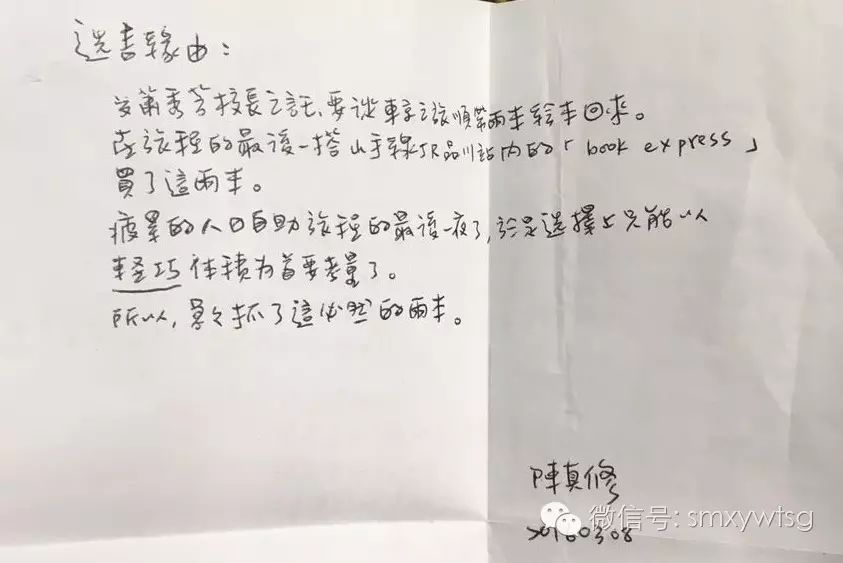 選書緣由：
受蕭秀芬校長之託，要從東京之旅順帶兩本繪本回來。
在旅程的最後一搭山手線JR品川站內的「book express」
買了這兩本。
疲累的八日自助旅程的最後一夜了，於是選擇上只能以
輕巧体積为首要考量了。
所以，抓了這必然的兩本。
陳真修
20160308
微信号: smxywtsg